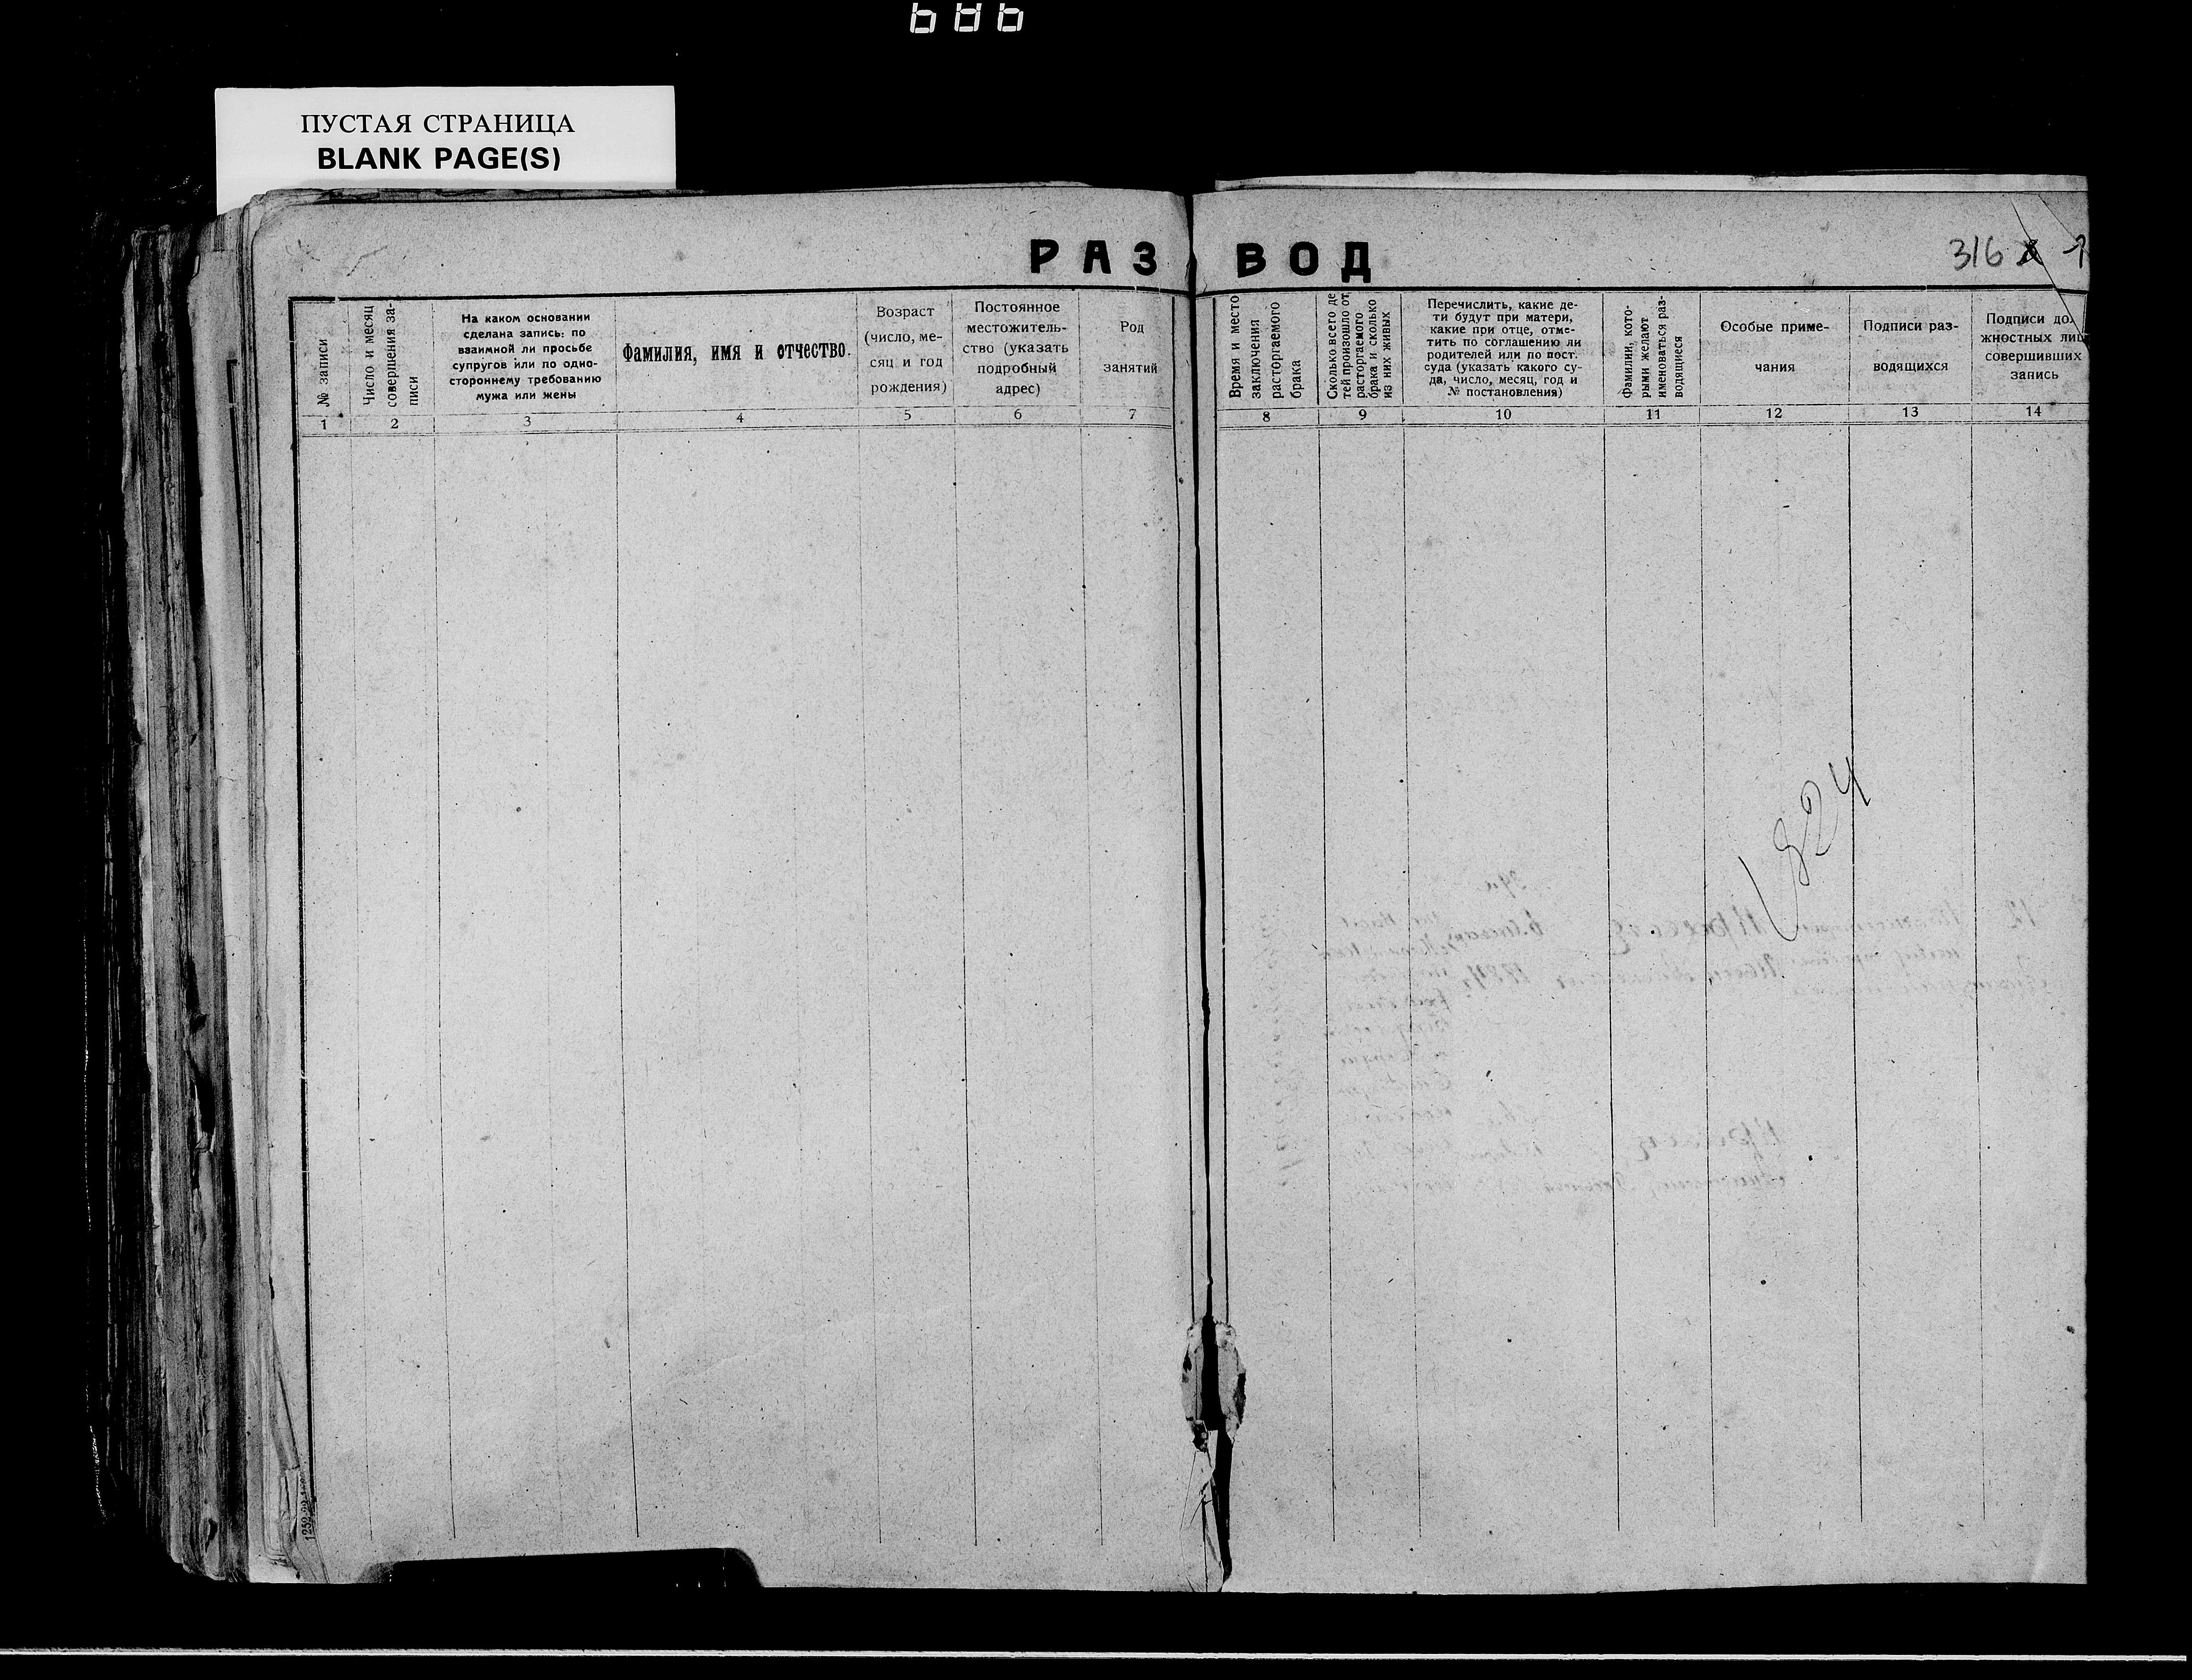 ПУСТАЯ СТРАНИЦА
BLANK PAGE(S)
РАЗВОД
316
№ записи
Число и месяц
совершения за-
писи
На каком основании
сделана запись: по
взаимной ли просьбе
супругов или по одно-
стороннему требованию
мужа или жены
Фамилия, имя и отчество.
Возраст
(число, ме-
сяц и год
рождения)
Постоянное
местожитель-
ство (указать
подробный
адрес)
Род
занятий
Время и место
заключения
расторгаемого
брака
Сколько всего де
тей произошло от
расторгаемого
брака и сколько
из них живых
Перечислить, какие де-
ти будут при матери,
какие при отце, отме-
тить по соглашению ли
родителей или по пост.
суда (указать какого су-
да, число, месяц, год и
№ постановления)
Фамилии, кото-
рыми желают
именоваться раз-
водящиеся
Особые приме-
чания
Подписи раз-
водящихся
Подписи дол
жностных лиц
совершивших
запись
1 2 3 4 5 6 7 8 9 10 11 12 13 14